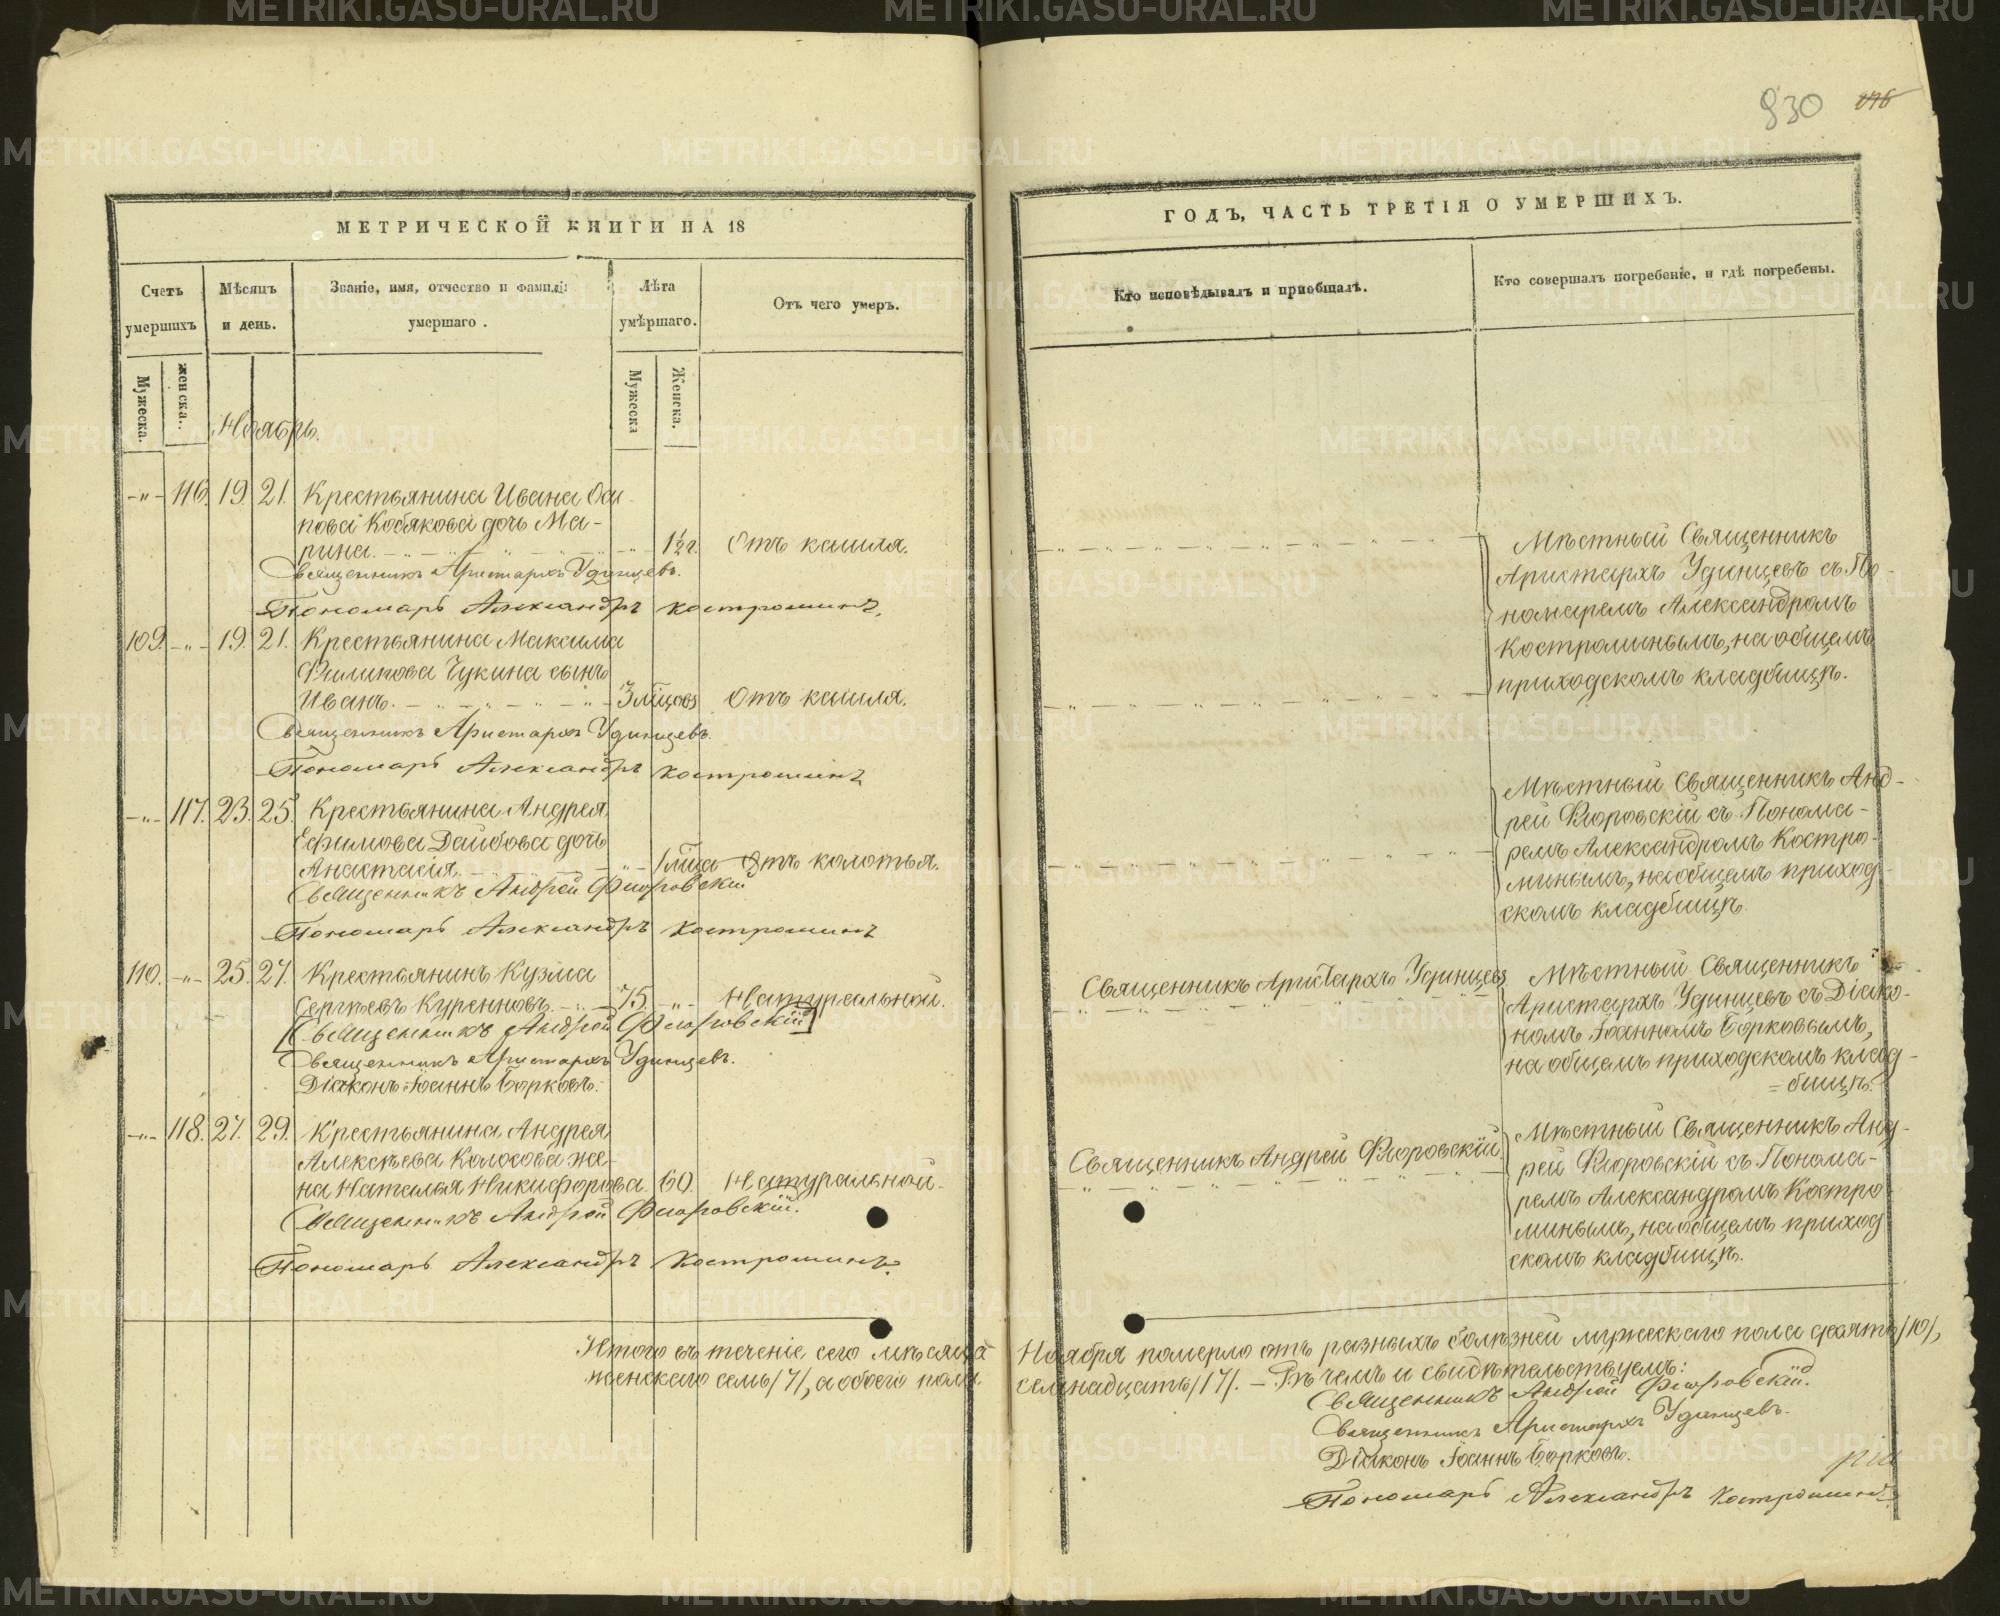 830 876
МЕТРИЧЕСКОЙ КНИГИ НА 18
Счетъ умершихъ
Мужеска.
женска.
Мѣсяцъ и день.
Званіе, имя, отчество и фамилі
умершаго.
Лѣта умѣршаго.
Мужеска
Женска.
Отъ чего умеръ.
Ноябрь.
-"- 116. 19. 21. Крестьянина Ивана Оси
пова Кобякова дочь Ма-
рина. -"- 1½ г. Отъ кашля.
Священникъ Аристархъ Удинцевъ.
Пономарь Александръ Костроминъ.
109. -"- 19. 21. Крестьянина Максима
Филипова Чукина сынъ
Иванъ. 3 мѣцовъ Отъ кашля.
Священникъ Аристархъ Удинцевъ.
Пономарь Александръ Костроминъ
-"- 117. 23. 25. Крестьянина Андрея
Ефимова Даибова дочь
Анастасія. -"- 1 мѣца Отъ колотья.
Священникъ Андрей Флоровскій
Пономарь Александръ Костроминъ
110. -"- 25. 27. Крестьянинъ Кузма
Сергѣевъ Куренновъ. 75. -"- Натуральной.
Священникъ Андрей Флоровскій
Священникъ Аристархъ Удинцевъ.
Діаконъ Іоаннъ Борковъ.
-"- 118. 27. 29. Крестьянина Андрея
Алексѣева Колосова же-
на Наталья Никифорова. 60. Натуральной.
Священникъ Андрей Флоровскій.
Пономарь Александръ Костроминъ.
Итого въ теченіе сего мѣсяца
женскаго семь /7/, а обоего пола
ГОДЪ, ЧАСТЬ ТРЕТІЯ О УМЕРШИХЪ.
Кто исповѣдывалъ и пріобщалъ.
Кто совершалъ погребеніе, и гдѣ погребены.
Мѣстный Священникъ
Аристархъ Удинцевъ съ По-
номаремъ Александромъ
Костроминымъ, на общемъ
приходскомъ кладбищѣ.
Мѣстный Священникъ Анд-
рей Флоровскій съ Понома-
ремъ Александромъ Костро-
минымъ, на общемъ приход-
скомъ кладбищѣ.
Священникъ Аристархъ Удинцевъ
Мѣстный Священникъ
Аристархъ Удинцевъ съ Діако-
номъ Іоанномъ Борковымъ,
на общемъ приходскомъ клад-
=бищѣ.
Священникъ Андрей Флоровскій.
Мѣстный Священникъ Анд-
рей Флоровскій съ Понома-
ремъ Александромъ Костро-
минымъ, на общемъ приход
скомъ кладбищѣ.
Ноября померло отъ разныхъ болѣзней мужескаго пола десять /10/,
семнадцать /17/. — Въ чемъ и свидѣтельствуемъ:
Священникъ Андрей Флоровскій.
Священникъ Аристархъ Удинцевъ.
Діаконъ Іоаннъ Борковъ.
Пономарь Александръ Костроминъ.
METRIKI.GASO-URAL.RU